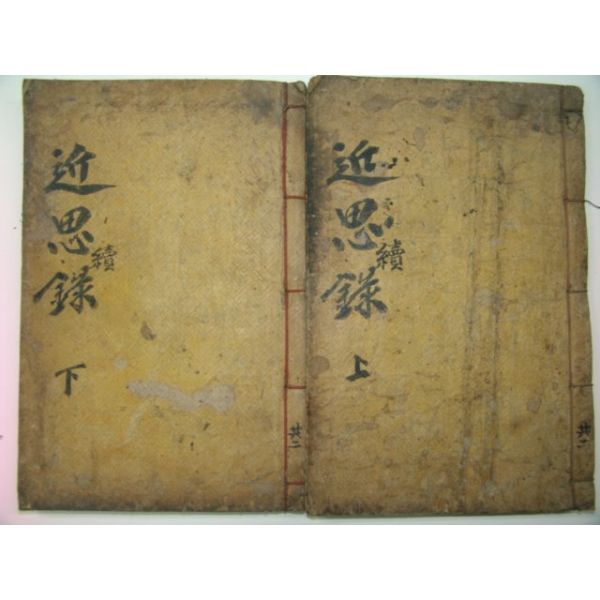 近思錄
續
上
共二
近思錄
續
下
共二